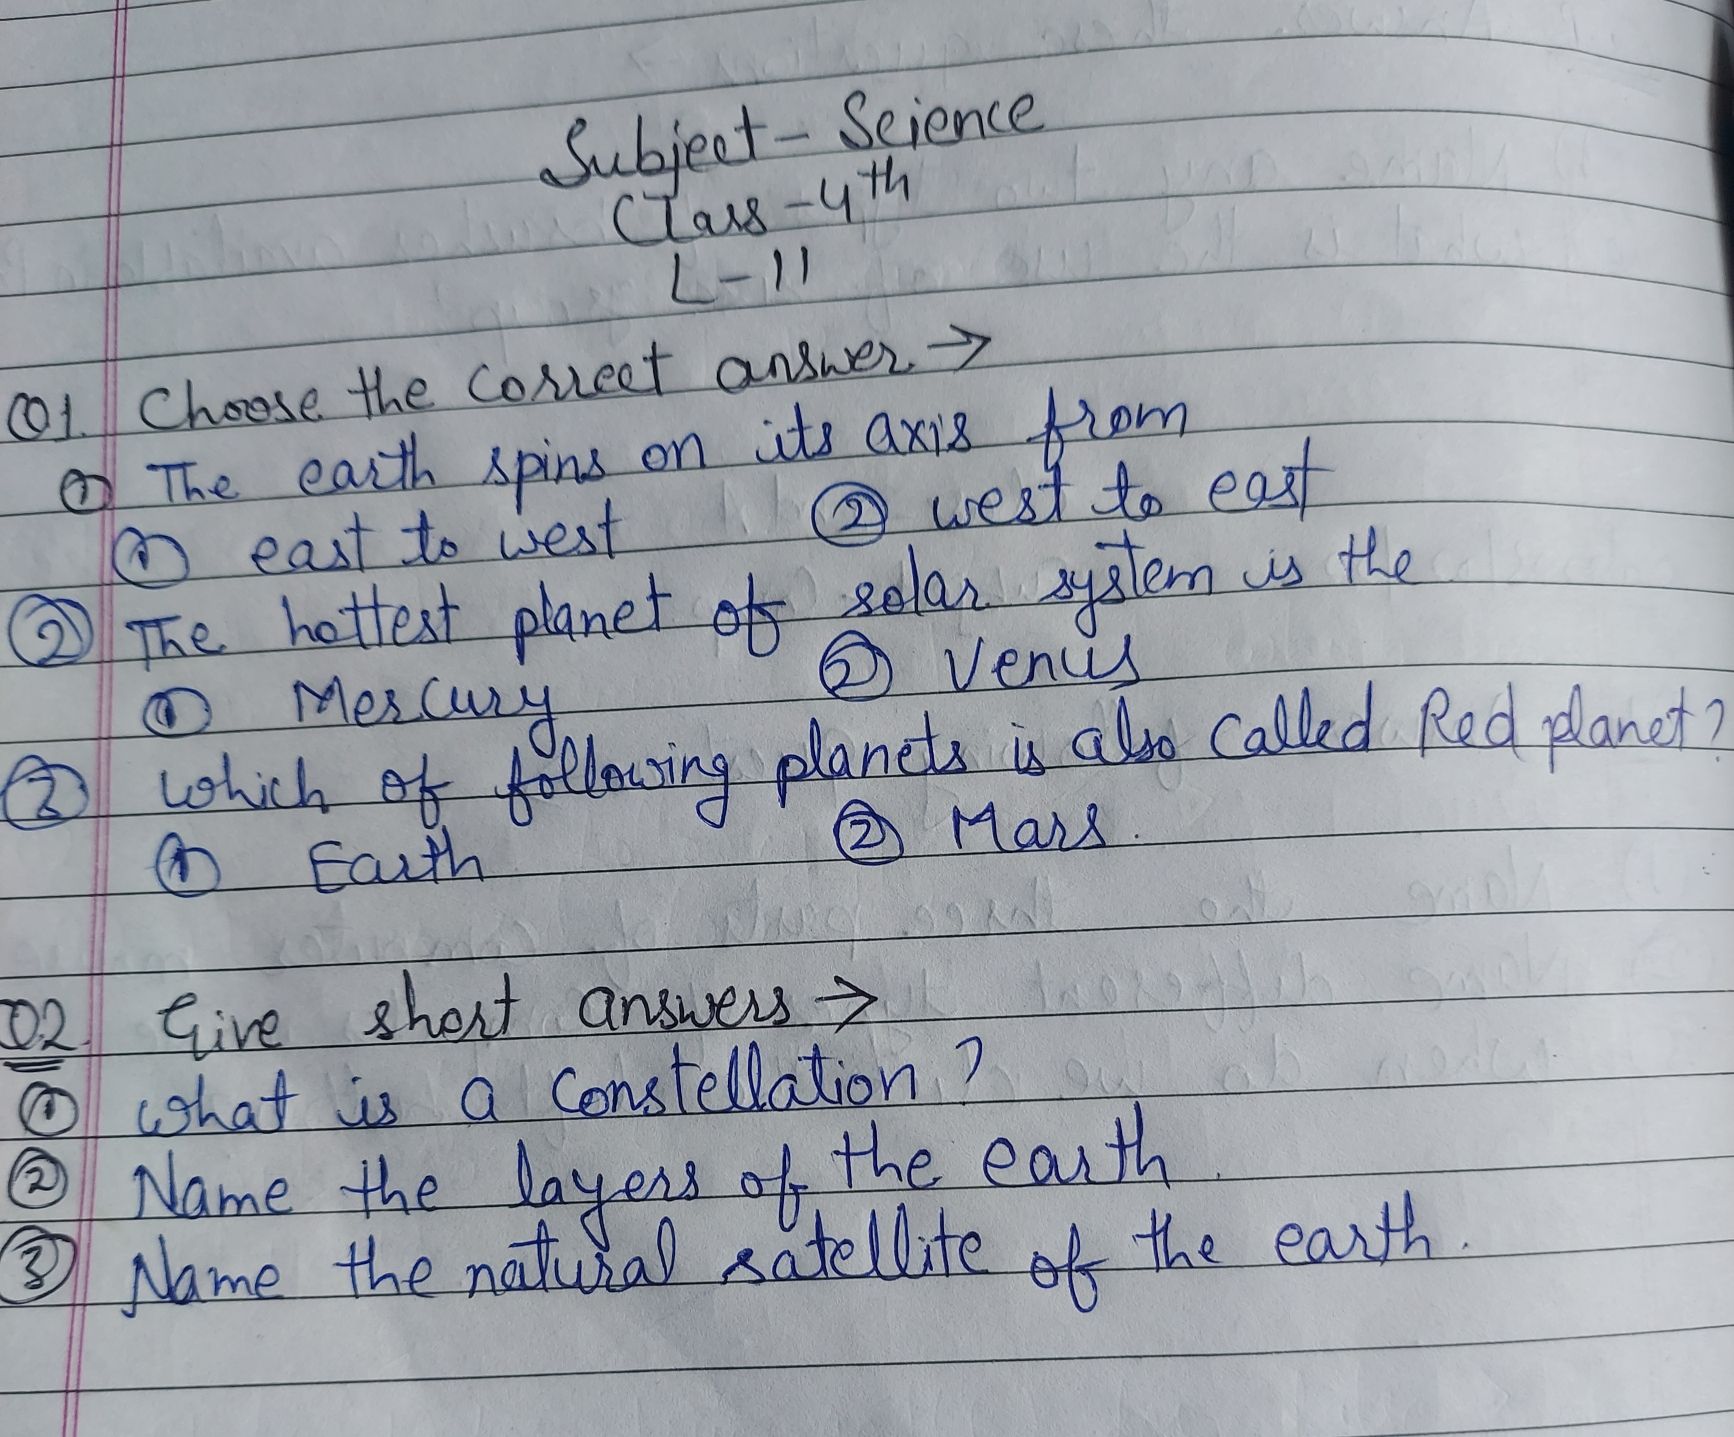 Subject - Science
Class - 4th
L - 11
Q1. Choose the correct answer. →
① The earth spins on its axis from
① east to west ② west to east
② The hottest planet of solar system is the
① Mercury ② Venus
③ Which of following planets is also called Red planet?
① Earth ② Mars.
Q2. Give short answers →
① What is a constellation?
② Name the layers of the earth.
③ Name the natural satellite of the earth.